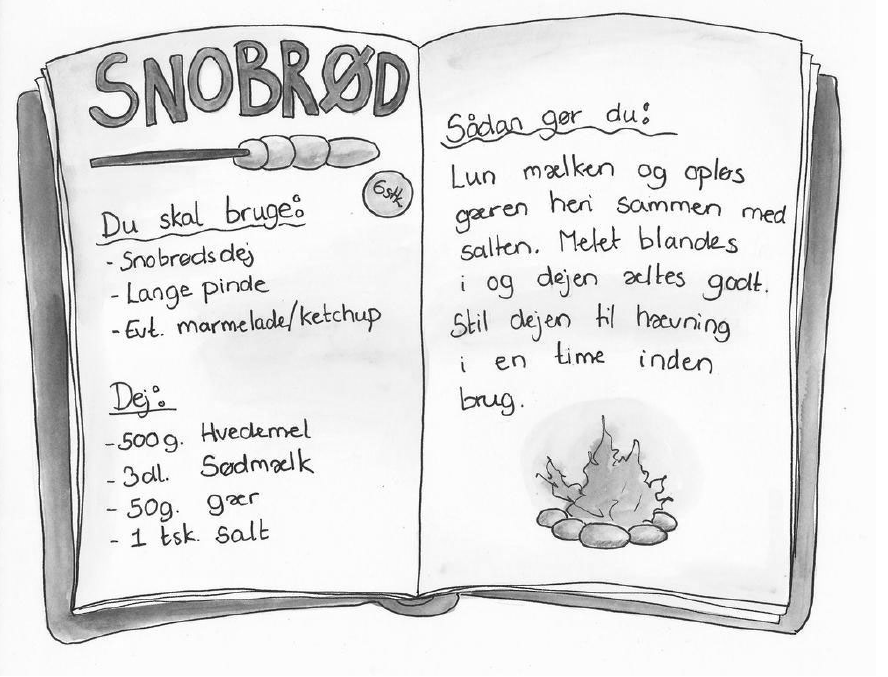 SNOBRØD
6 stk
Du skal bruge:
- Snobrødsdej
- Lange pinde
- Evt. marmelade/ketchup
Dej:
- 500g. Hvedemel
- 3dl. Sødmælk
- 50g. gær
- 1 tsk. Salt
Sådan gør du:
Lun mælken og opløs
gæren heri sammen med
salten. Melet blandes
i og dejen æltes godt.
Stil dejen til hævning
i en time inden
brug.